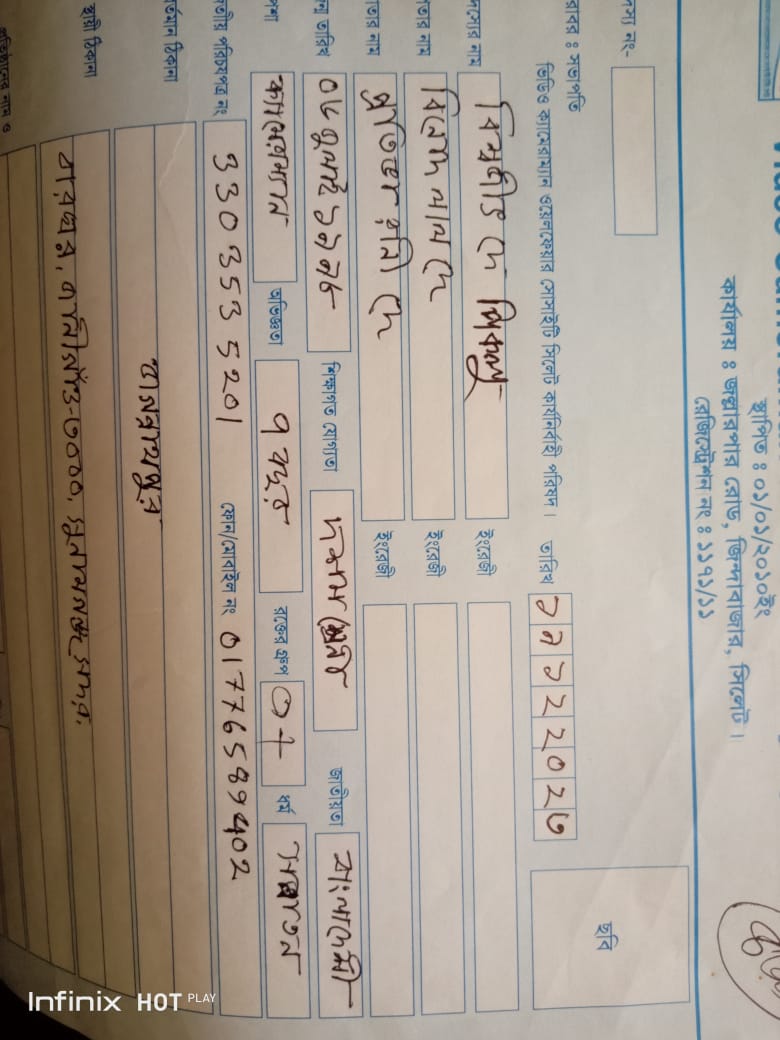 স্থাপিত ঃ ০১/০১/২০১০ইং
কার্যালয় ঃ জল্লারপার রোড, জিন্দাবাজার, সিলেট।
রেজিস্ট্রেশন নং ঃ ১১৭১/১১
নং-
ছবি
সভাপতি
ভিডিও ক্যামেরাম্যান ওয়েলফেয়ার সোসাইটি সিলেট কার্যনির্বাহী পরিষদ। তারিখ ১৯১২২০২৩
নাম বিশ্বজীত দে পিকলু ইংরেজী
নাম বিনোদ লাল দে ইংরেজী
নাম প্রতিভা রানী দে ইংরেজী
তারিখ ০৬ জুলাই ১৯৭৮ শিক্ষাগত যোগ্যতা দশম শ্রেনী জাতীয়তা বাংলাদেশী
ক্যামেরাম্যান অভিজ্ঞতা ৭ বছর রক্তের গ্রুপ O+ ধর্ম সনাতন
পরিচয়পত্র নং 3303535201 ফোন/মোবাইল নং 01776589402
ঠিকানা
জগন্নাথপুর
স্থায়ী ঠিকানা
সুনামগঞ্জ সদর,
নাম ও
Infinix HOT PLAY